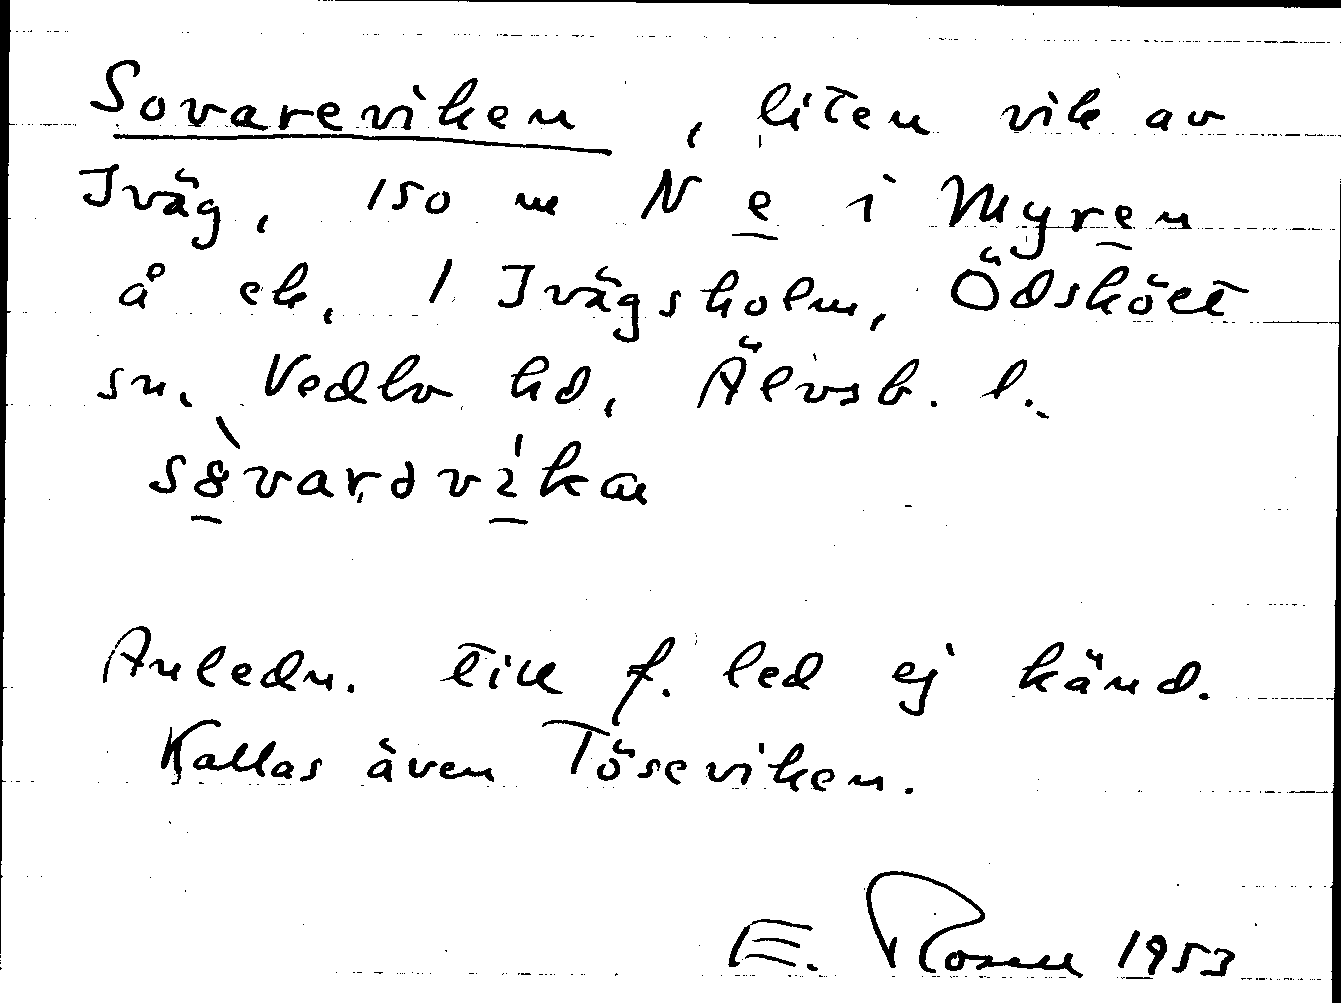 Sovareviken, liten vik av
Iväg, 150 m N e i Myren
å ek. 1 Ivägsholm, Ödskölt
sn. Vedbo hd, Älvsb. l.
Anledn. till f. led ej känd.
Kallas även Töseviken.
E. Rosell 1953